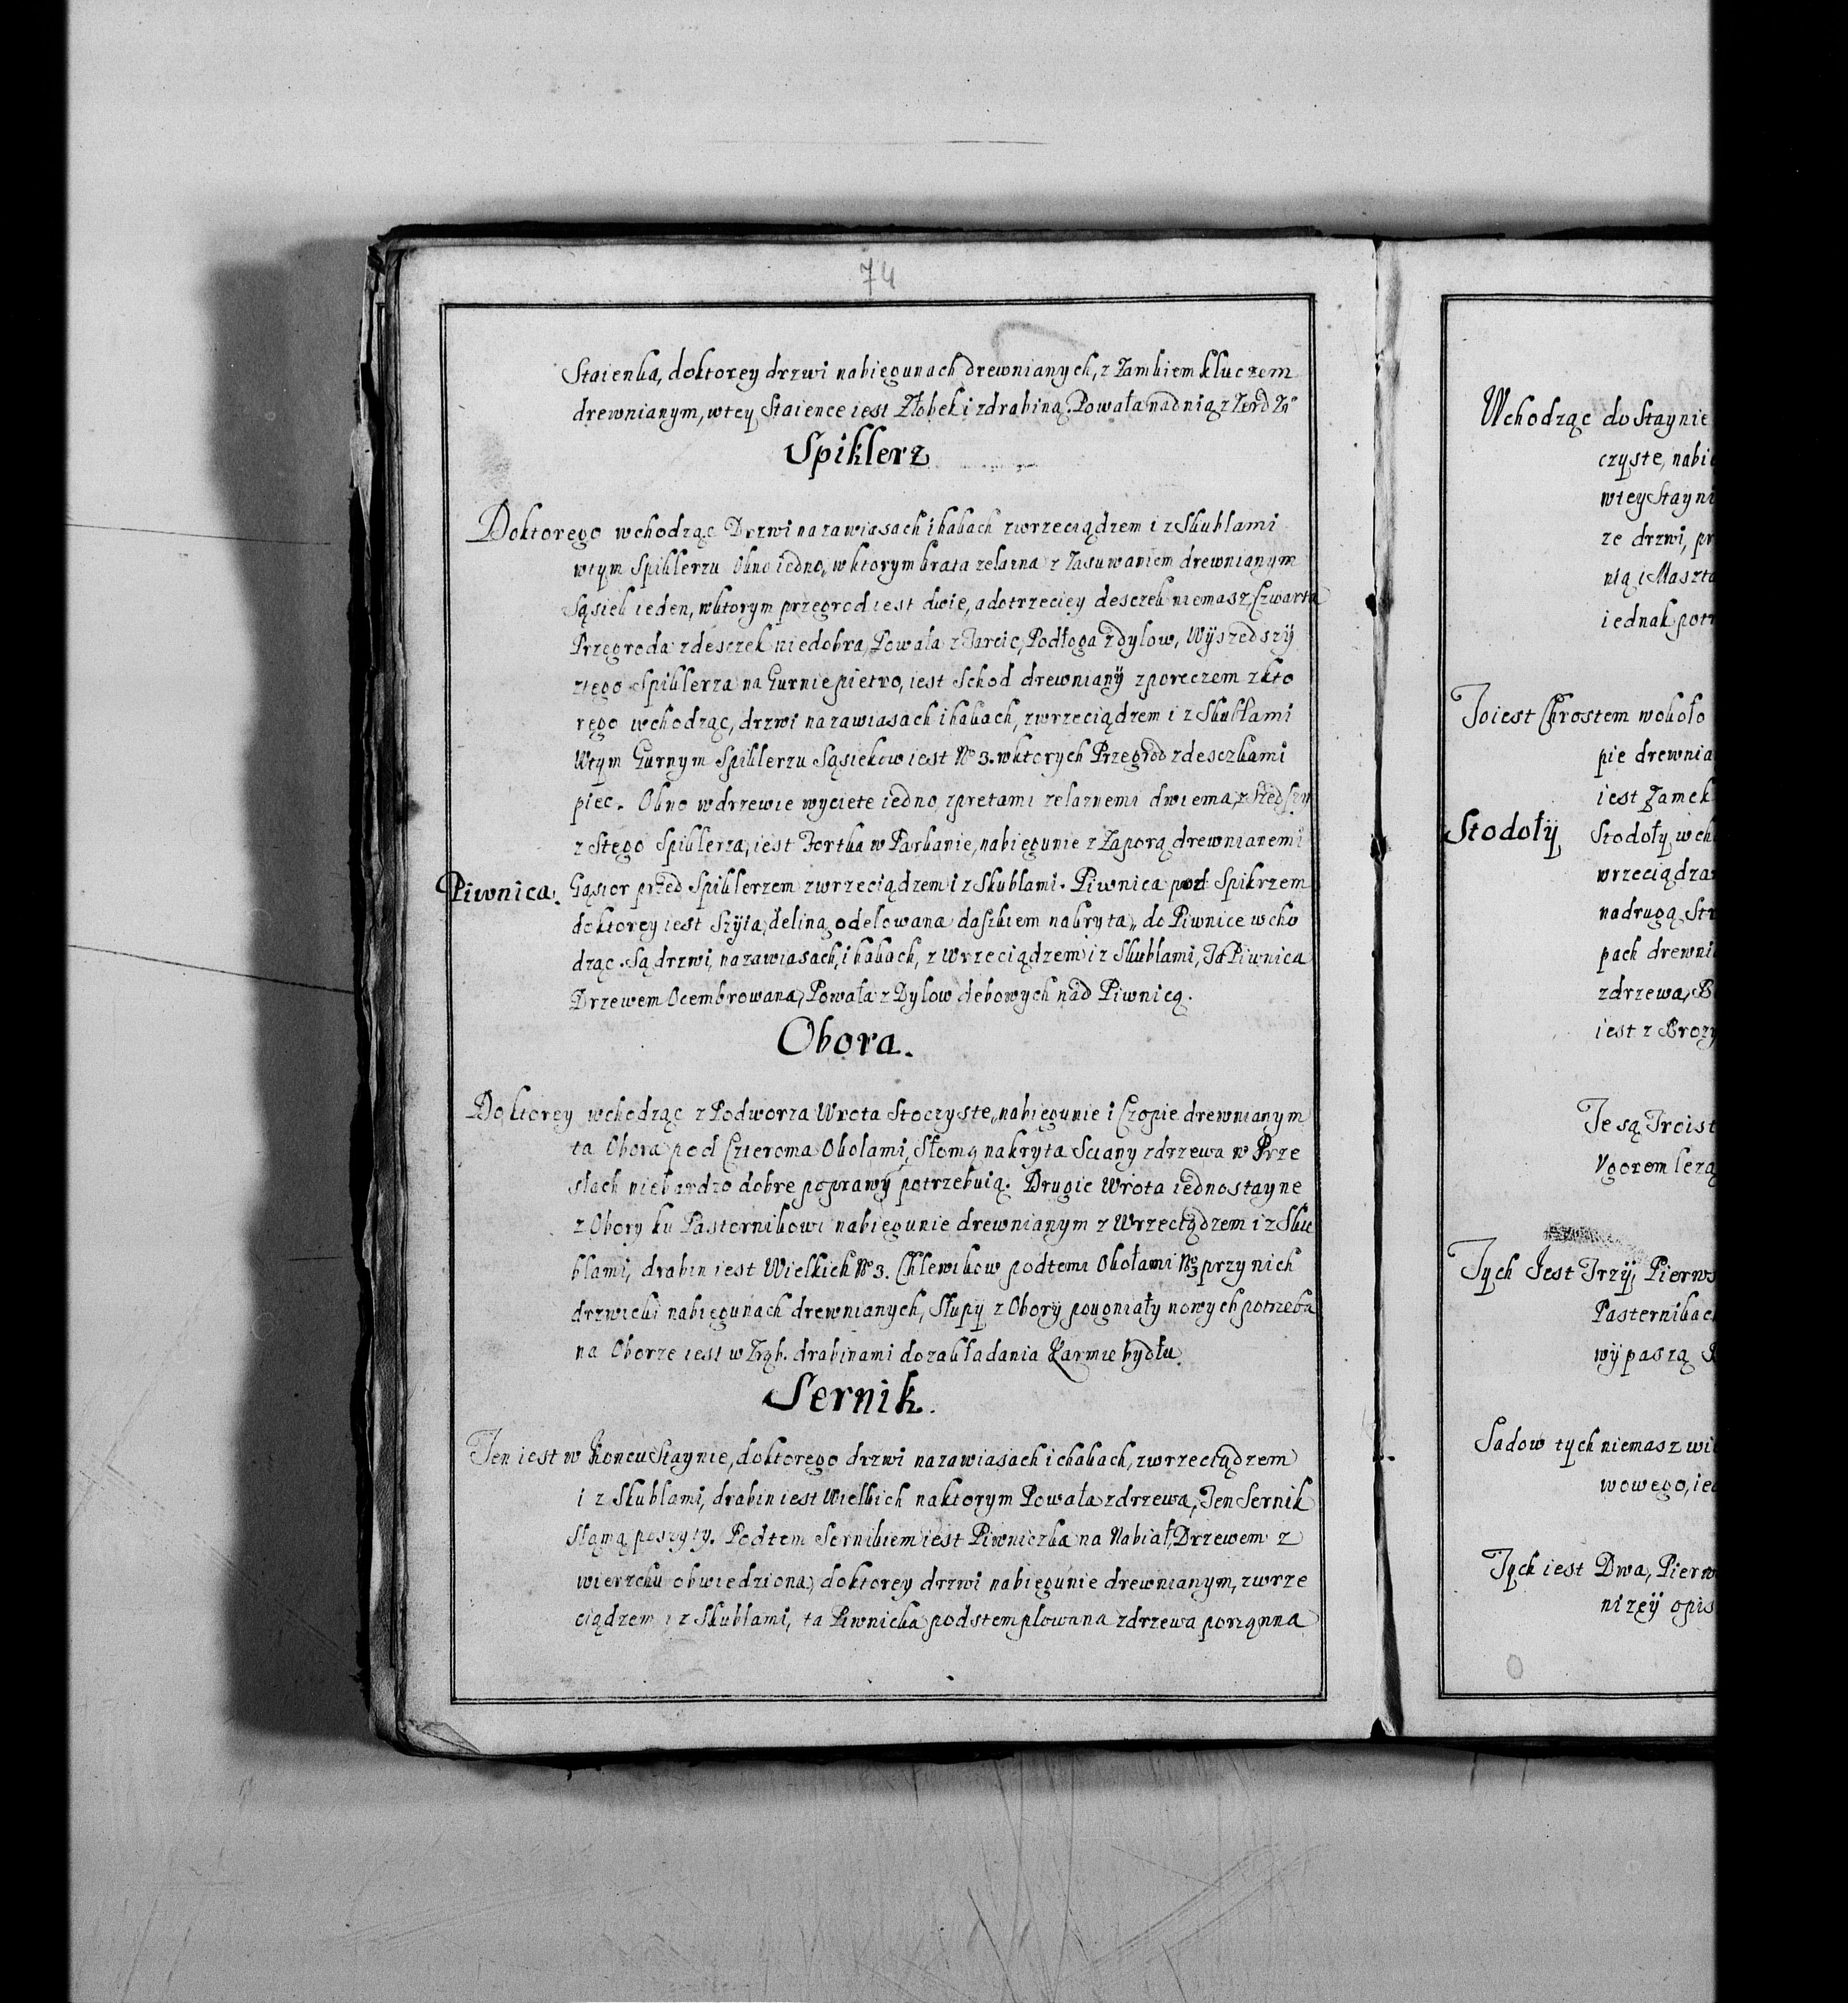 74
Staienka, doktorey drzwi nabiegunach drewnianych, z Zamkiem kluczem
drewnianym, wtey Staience iest Złobek i zdrabiną. Powała nad nią z Zerdzi
Spiklerz
Doktorego wchodząc Drzwi nazawiasach i hakach zwrzeciądzem i z Skublami
wtym Spiklerzu Okno iedno, wktorym krata zelazna z Zasuwaniem drewnianym
Sąsiek ieden, wktorym przegrod iest dwie, adotrzeciey desczek niemasz, Czwarta
Przegroda zdesczek niedobra, Powała z Tarcic, Podłoga zdylow, Wÿszedszÿ
ztego Spiklerza na Gurnie pietro, iest Schod drewnianÿ zporeczem zkto
rego wchodząc, drzwi nazawiasach i hakach, zwrzeciądzem i z Skubłami
Wtym Gurnym Spiklerzu Sąsiekow iest No 3. wktorych Przegrod zdesczkami
piec. Okno wdrzewie wyciete iedno, zpretami zelaznemi dwiema, z Szedszy
z Stego Spiklerza, iest Fortka w Parkanie, nabiegunie z Zaporą drewnianemi
Piwnica. Gąsior przed Spiklerzem zwrzeciądzem i z Skublami. Piwnica pod Spikrzem
doktorey iest Szÿia, deliną odelowana daszkiem nakryta, do Piwnice wcho
dząc. Są drzwi, nazawiasach, i hakach, z Wrzeciądzem i z Skublami, Ta Piwnica
Drzewem Ocembrowana, Powała z Dylow debowych nad Piwnicą.
Obora.
Doktorey wchodząc z Podworza Wrota Stoczyste, nabiegunie i Czopie drewnianym
ta Obora pod Czteroma Okolami, Słomą nakryta Sciany zdrzewa w Prze
słach niebardzo dobre poprawÿ potrzebuią. Drugie Wrota iednostayne
z Obory ku Pasternikowi nabiegunie drewnianym z Wrzeciądzem i z Sku
blami, drabin iest Wielkich No 3. Chlewikow podtemi Okołami No 3 przy nich
drzwicki nabiegunach drewnianych, Słupÿ z Oborÿ pougniały nowych potrzeba
na Oborze iest w Zrąb. drabinami dozakładania Karmie bydłu.
Sernik.
Ten iest w Koncu Staynie, doktorego drzwi nazawiasach i chakach, zwrzeciądzem
i z Skublami, drabin iest Wielkich naktorym Powała zdrzewa, Ten Sernik
Słomą poszyty. Podtem Sernikiem iest Piwniczka na Nabiał, Drzewem z
wierzchu obwiedziona, doktorey drzwi nabiegunie drewnianym, zwrze
ciądzem i z Skublami, ta Piwnicka podstemplowana zdrzewa porząnna
Wchodząc do Staynie
czyste, nabie
wtey Stayni
ze drzwi, pr
nią i Maszta
iednak potr
To iest Chrostem wokoło
pie drewnia
iest Zamek
Stodołÿ Stodołÿ wch
wrzeciądza
nadrugą Str
pach drewni
zdrzewa, B
iest z Brozy
Te są Troist
Vgorem lezą
Tych Jest Trzÿ, Pierws
Pasternikach
wÿpaszą
Sadow tych niemasz wi
wowego, ie
Tych iest Dwa, Pierw
nizeÿ opis